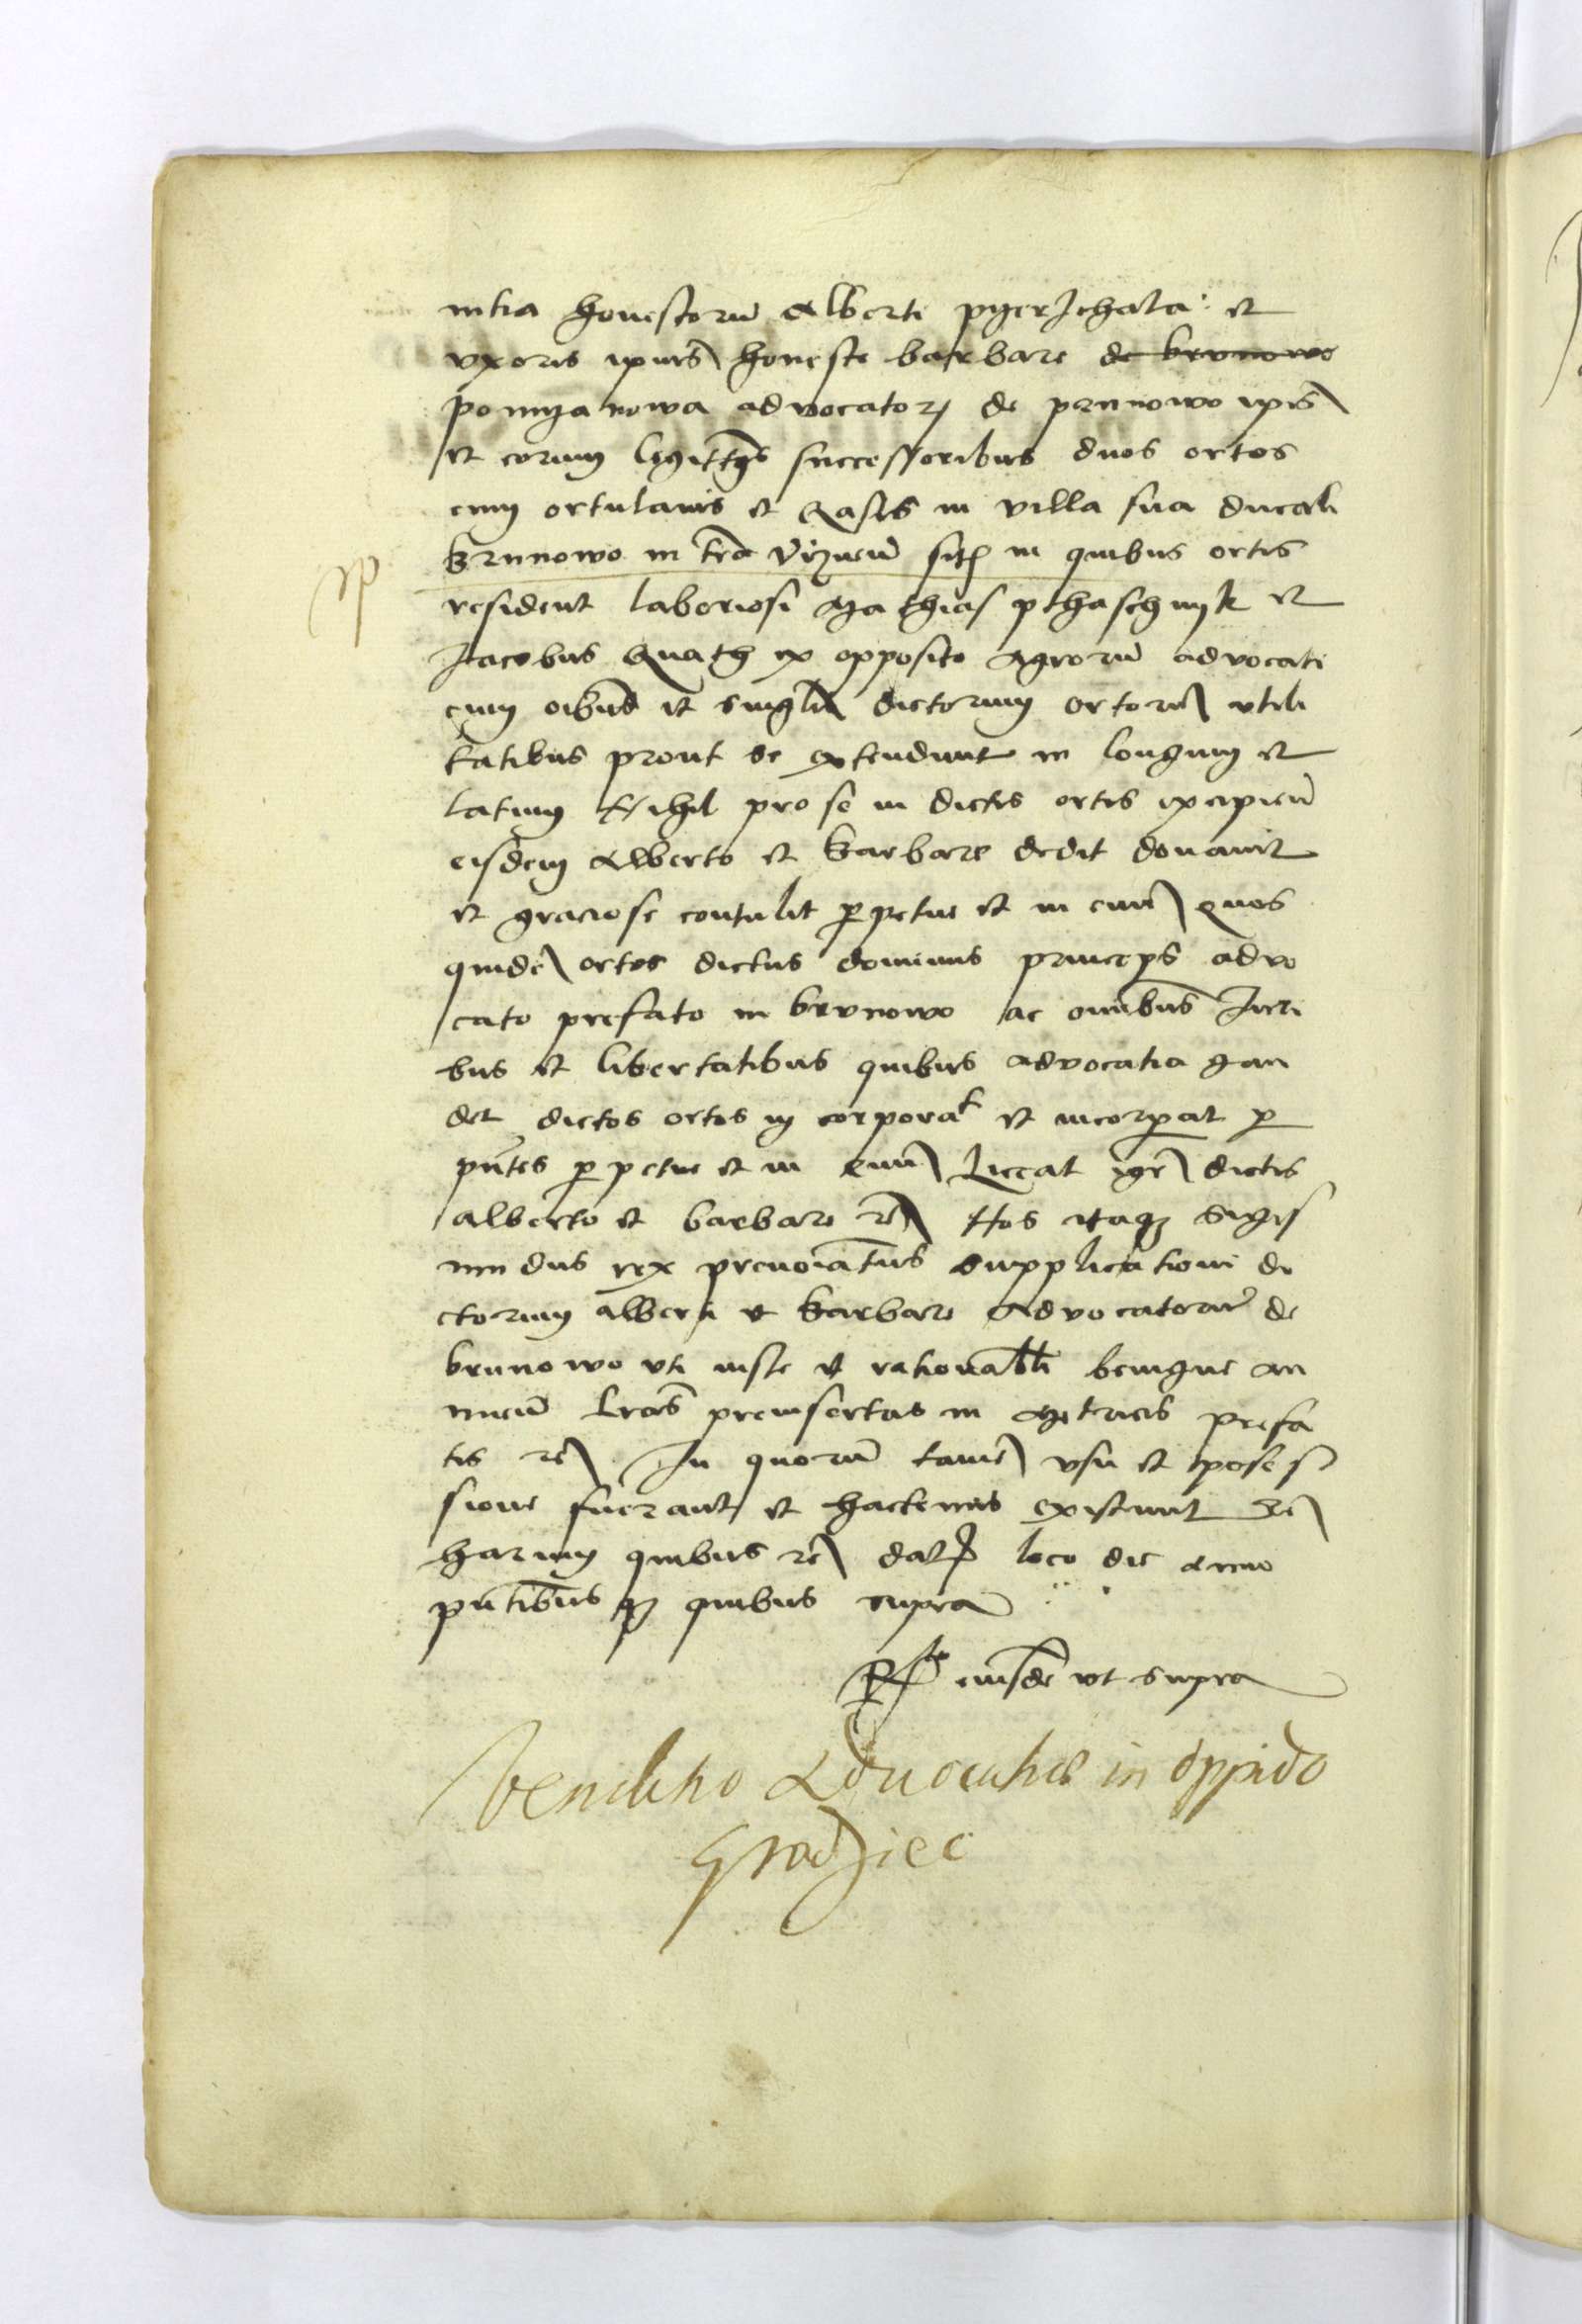 intia honestorū Alberti pyerzchala et
vxoris ipius honeste barbare de brvnowo
pomyanowa advocatorꝫ de prunowo ipis
et eorum legittīs successoribus duos ortos
cum ortulanis et Casis in villa sua ducali
Brunowo in trā sitꝭ in quibus ortis
resident laboriosi Mathias pthaschnyk et
Jacobus Quath ex opposito Agrorū advocati
cum oībus et singlis dictorum ortorū vtili
tatibus prout se extendunt in longum et
latum Nihil pro se in dictis ortis excipieñ
eisdem Alberto et Barbare dedit donavit
et graciose contulit ꝑpetue et in euum quos
quidē ortos dictus dominus princeps advo
cato prefato in brvnowo ac omnibus Juri
bus et libertatibus quibus advocatia gau
det dictos ortos in corporat et incorporat ꝑ
pn̄tes ꝑpetue et in euum Liceat igr̄ dictis
alberto et barbare rē Nos itaqꝫ Sigis
mundus rex prenoīatus supplicationi di
ctorum alberti et Barbare Advocatorū de
brunowo vti iuste et rationabli benigne an
nueñ lr̄as preinsertas in Metricis prefa
tis rē In quorū tamē vsu et posses
sione fuerant et hactenus existunt rē
harum quibus rē datꝭ loco die anno
pn̄tibus qꝫ quibus supra
Rͭᵒ eiusdē vt supra
Venditio Aduocatiae in oppido
Grodziec